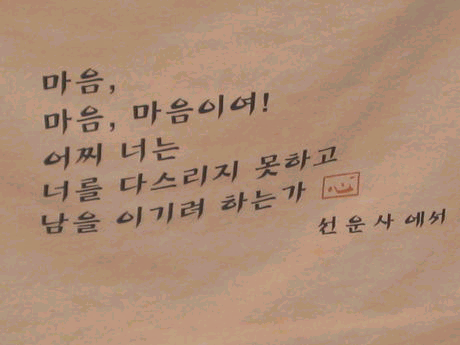 마음,
마음, 마음이여!
어찌 너는
너를 다스리지 못하고
남을 이기려 하는가 心
선운사에서